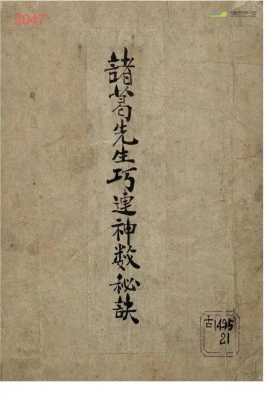 2047
諸葛先生巧連神数秘訣
古1495
21